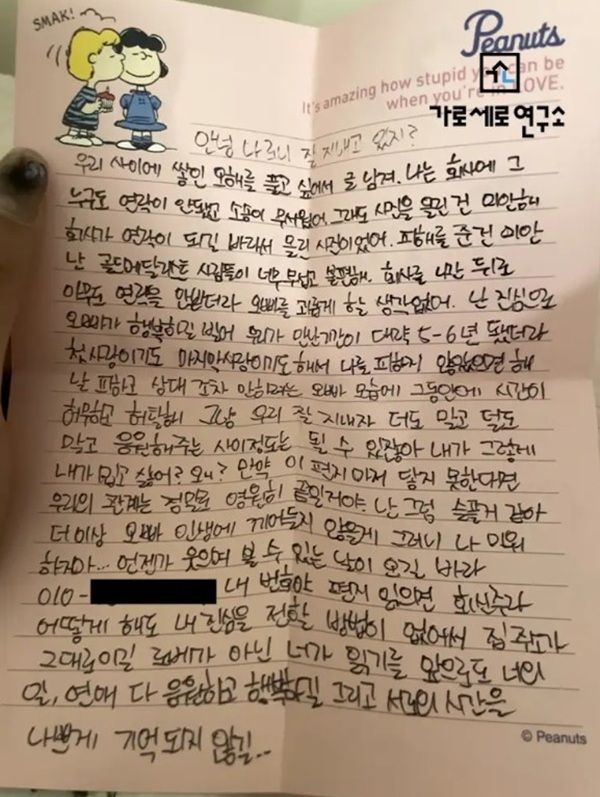 SMAK!
Peanuts
It's amazing how stupid you can be
when you're in LOVE.
가로세로연구소
안녕 나 론이 잘 지내고 있지?
우리 사이에 쌓인 오해를 풀고 싶어서 글 남겨. 나는 회사에 그
누구도 연락이 안됐고 소송이 무서웠어. 그래도 사진을 올린 건 미안해
회사가 연락이 되길 바라서 올린 사진이었어. 피해를 준건 미안
난 골드메달리스트 사람들이 너무 무섭고 불편해. 회사를 나간 뒤로
아무도 연락을 안받더라 오빠를 괴롭게 할 생각없어. 난 진심으로
오빠가 행복하길 빌어 우리가 만난기간이 대략 5-6년 됐더라
첫사랑이기도 마지막사랑이기도 해서 나를 피하지 않았으면 해
날 피하고 상대 조차 안하려는 오빠 모습에 그동안에 시간이
허무하고 허탈해 그냥 우리 잘 지내자 더도 말고 덜도
말고 응원해주는 사이정도는 될 수 있잖아 내가 그렇게
내가 밉고 싫어? 왜? 만약 이 편지마저 닿지 못한다면
우리의 관계는 정말로 영원히 끝일거야. 난 그럼 슬플거 같아
더이상 오빠 인생에 끼어들지 않을게 그러니 나 미워
하지마... 언젠가 웃으며 볼 수 있는 날이 오길 바라
010- 내 번호야 편지 읽으면 회신주라
어떻게 해도 내 진심을 전할 방법이 없어서 집주소가
그대로이길 로베가 아닌 너가 읽기를 앞으로도 너의
일, 연애 다 응원하고 행복하길 그리고 서로의 시간을
나쁘게 기억되지 않길...
© Peanuts